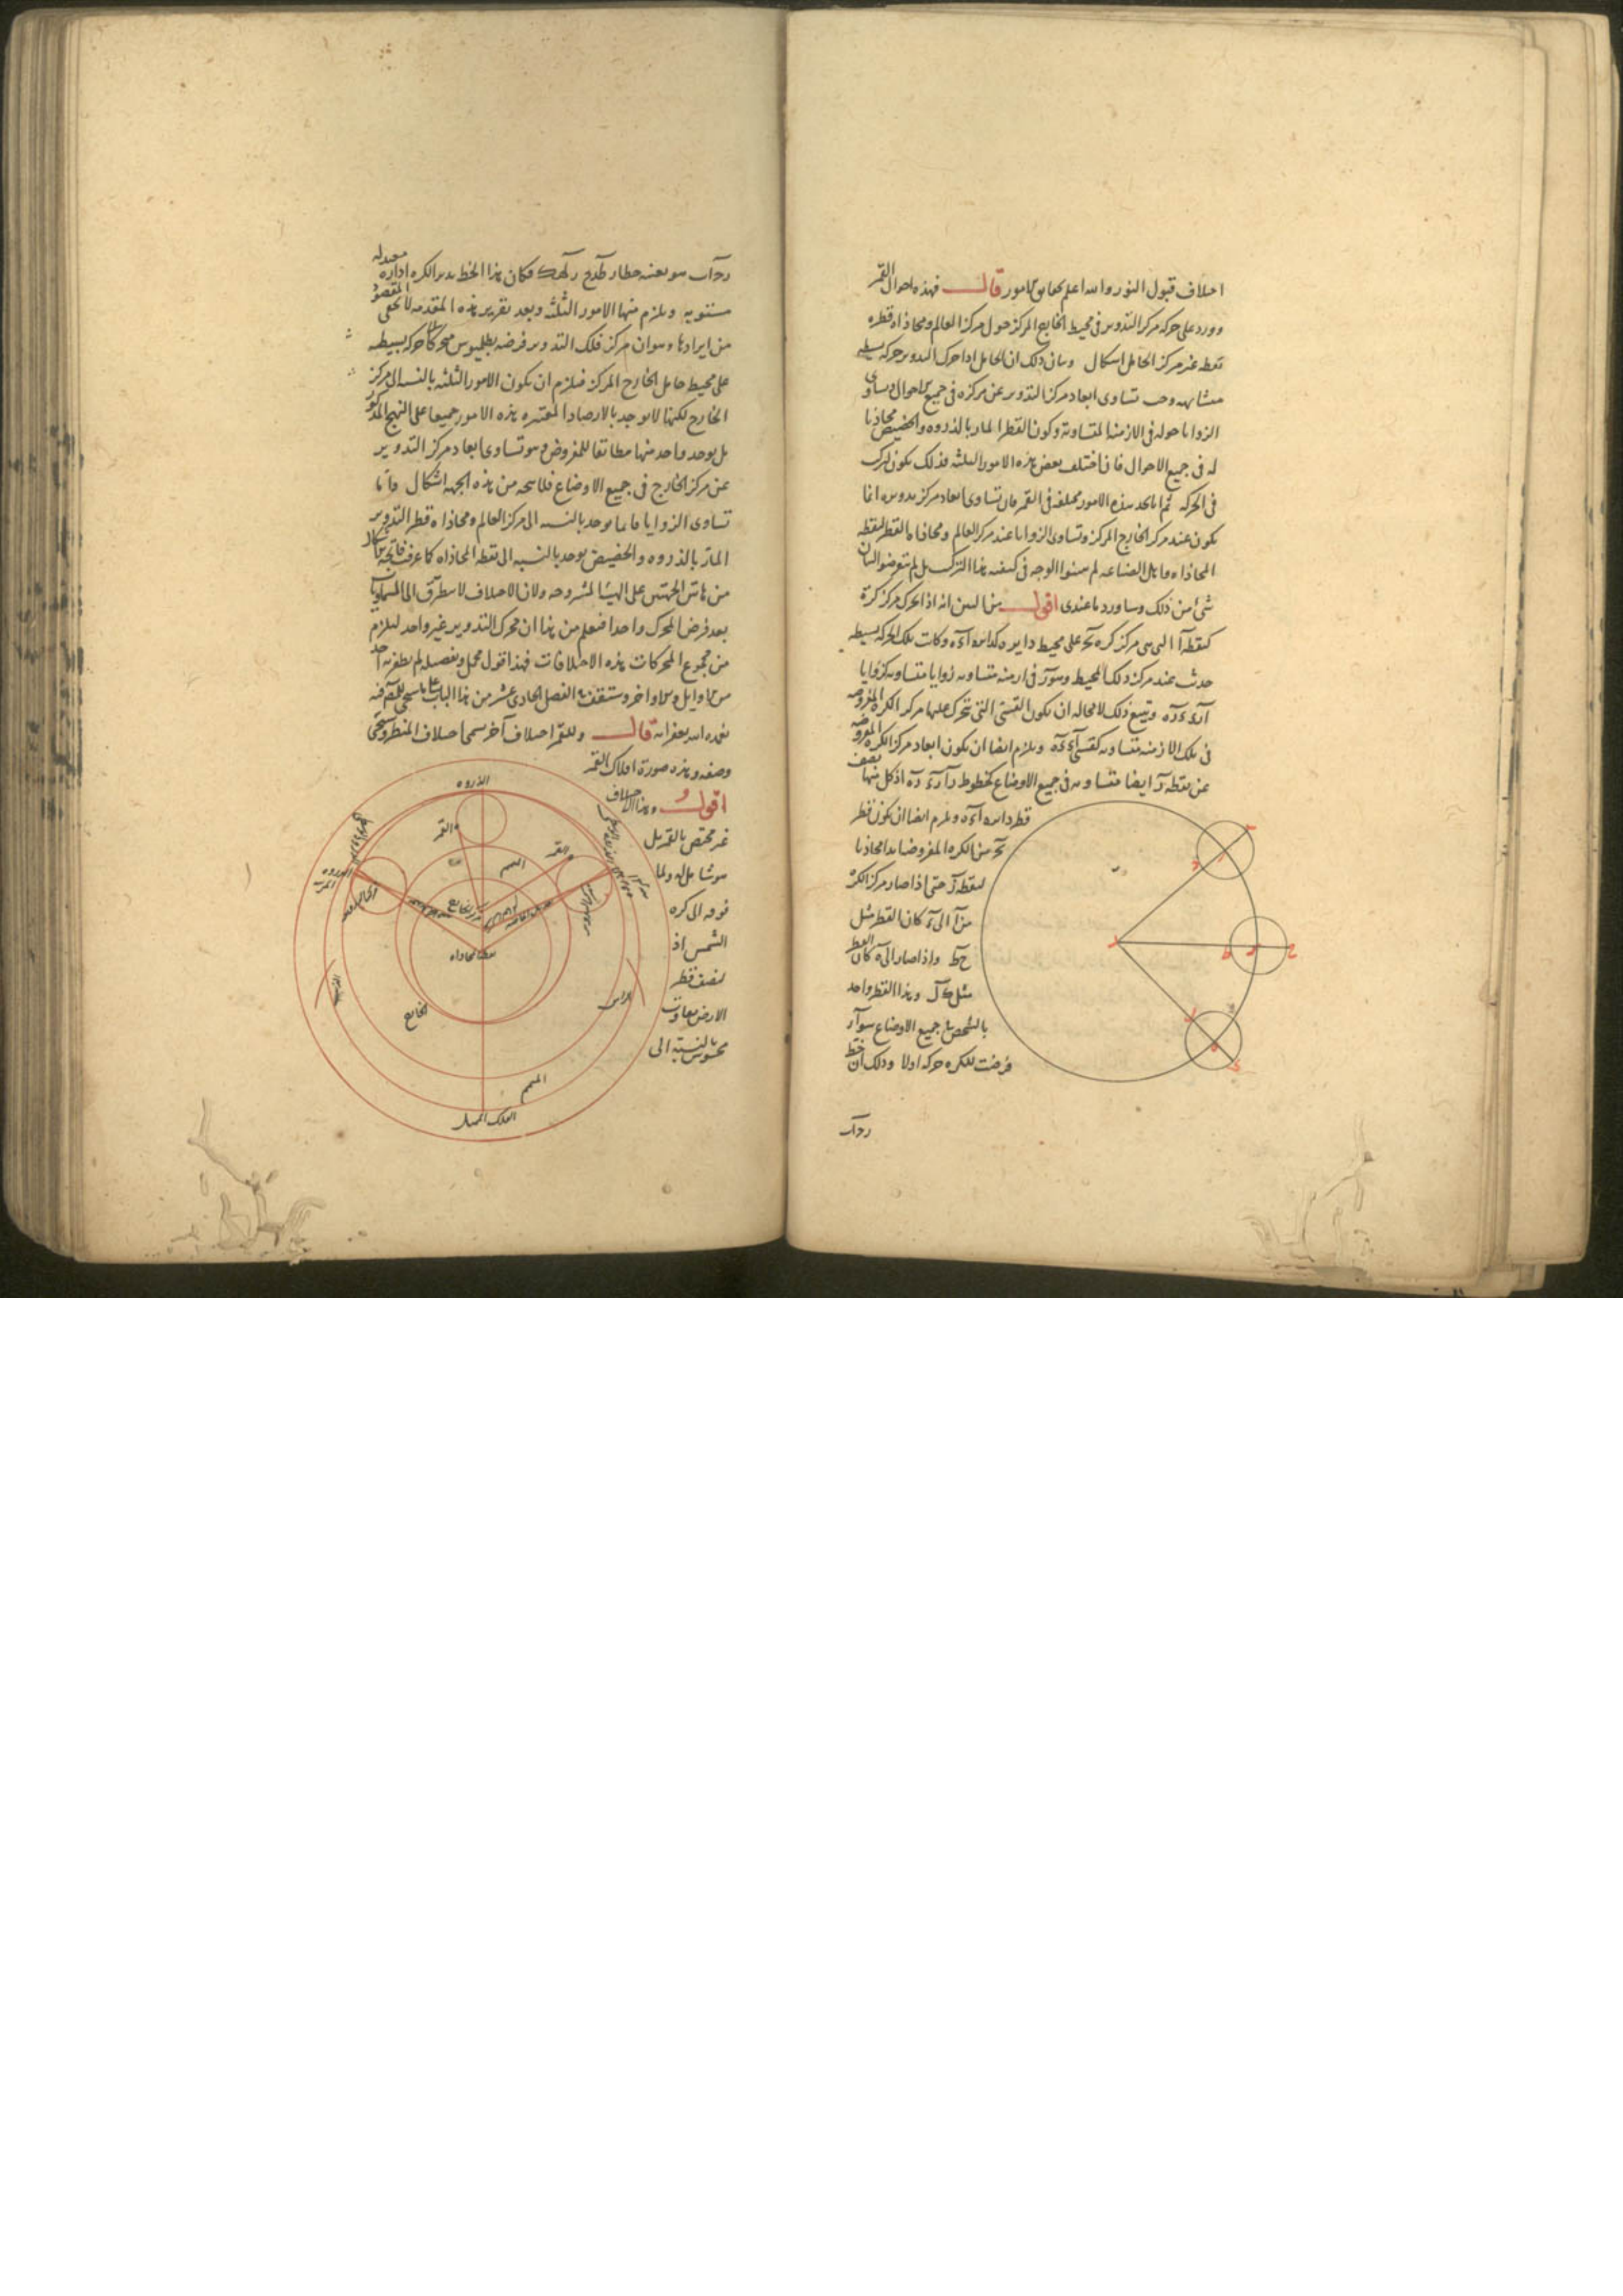 اختلاف قبول النور والله اعلم بحقايق الامور قال فهذه احوال القمر
وورد على حركة مركز التدوير في محيط الخارج المركز حول مركز العالم ومحاذاة قطره
نقطة غير مركز الحامل اشكال وبيان ذلك ان الحامل اذا حرك التدوير حركة بسيطة
متشابهة وجب تساوى ابعاد مركز التدوير عن مركزه في جميع الاحوال وتساوى
الزوايا حوله في الازمنة المتساوية وكون القطر المار بالذروة والحضيض محاذيا
له في جميع الاحوال فان اختلف بعض هذه الامور الثلثة فذلك يكون لتركب
في الحركة ثم انا نجد هذه الامور مختلفة في القمر فان تساوى ابعاد مركز تدويره انما
يكون عند مركز الخارج المركز وتساوى الزوايا عند مركز العالم ومحاذاة القطر لنقطة
المحاذاة واهل الصناعة لم يبينوا الوجه في كيفية هذا التركب بل لم يتعرضوا لبيان
شئ من ذلك وساورد ما عندى اقول من البين انه اذا تحرك مركز كرة
كنقطة آ التي هي مركز كرة بج على محيط دايرة كدايرة اءه وكانت تلك الحركة بسيطة
حدث عند مركز ذلك المحيط وهو ر في ازمنة متساوية زوايا متساوية كزوايا
ارء ءره ويتبع ذلك لا محالة ان يكون القسى التي تتحرك عليها مركز الكرة المفروضة
في تلك الازمنة متساوية كقسى اء ءه ويلزم ايضا ان يكون ابعاد مركز الكرة المفروضة
عن نقطة ر ايضا متساوية في جميع الاوضاع كخطوط را رء ره اذ كل منها نصف
قطر دايرة اءه ويلزم ايضا ان يكون قطر
بج من الكرة المفروضة ابدا محاذيا
لنقطة ر حتى اذا صار مركز الكرة
من آ الى ء كان القطر مثل
حط واذا صار الى ه كان القطر
مثل كل وهذا القطر واحد
بالشخص في جميع الاوضاع سواء
فرضت للكرة حركة اولا وذلك ان خط
رجاب
رجاب هو بعينه خطا رطءح رلهك فكان هذا الخط يدير الكره ادارة معتدلة
مستوية ويلزم منها الامور الثلثة وبعد تقرير هذه المقدمة لا يخفى المقصود
من ايرادها وهو ان مركز فلك التدوير فرضه بطلميوس متحركا حركة بسيطة
على محيط حامل الخارج المركز فيلزم ان يكون الامور الثلثة بالنسبة الى مركز
الخارج لكنها لا توجد بالارصاد المعتبره هذه الامور جميعا على النهج المذكور
بل يوجد واحد منها مطابقا للمفروض وهو تساوى ابعاد مركز التدوير
عن مركز الخارج في جميع الاوضاع فلا يتجه من هذه الجهة اشكال واما
تساوى الزوايا فانما يوجد بالنسبة الى مركز العالم ومحاذاة قطر التدوير
المار بالذروه والحضيض يوجد بالنسبة الى نقطة المحاذاه كما عرفت فاتجه الاشكال
من هاتين الجهتين على الهيئة المشروحة ولان الاختلاف لا يتطرق الى السماويات
بعد فرض المحرك واحدا فنعلم من هذا ان محرك التدوير غير واحد ليلزم
من مجموع المحركات هذه الاختلافات فهذا قول مجمل وتفصيله لم يظفر به احد
من الاوايل والاواخر وستقف في الفصل الحادى عشر من هذا الباب على ما سنح للمصنف فيه
تغمده الله بغفرانه قال وللقمر اختلاف آخر يسمى اختلاف المنظر وسيجئ
وصفه وهذه صورة افلاك القمر
اقول وهذا الاختلاف
غير مختص بالقمر بل
هو شامل له ولما
فوقه الى كره
الشمس اذ
لنصف قطر
الارض تفاوت
محسوس بالنسبة الى
الذروه
القمر
القمر
المتمم
نقطة المحاذاه
الخارج
الراس
المتمم
الفلك الممثل